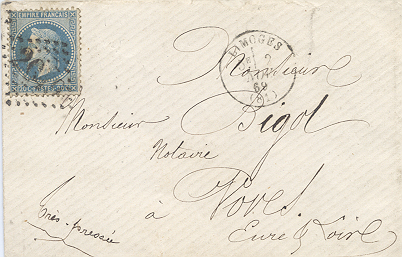 EMPIRE FRANÇAIS
LIMOGES
2
69
(81)
Monsieur
Monsieur Bigot
Notaire
à Voves
Eure & Loire
très-pressée